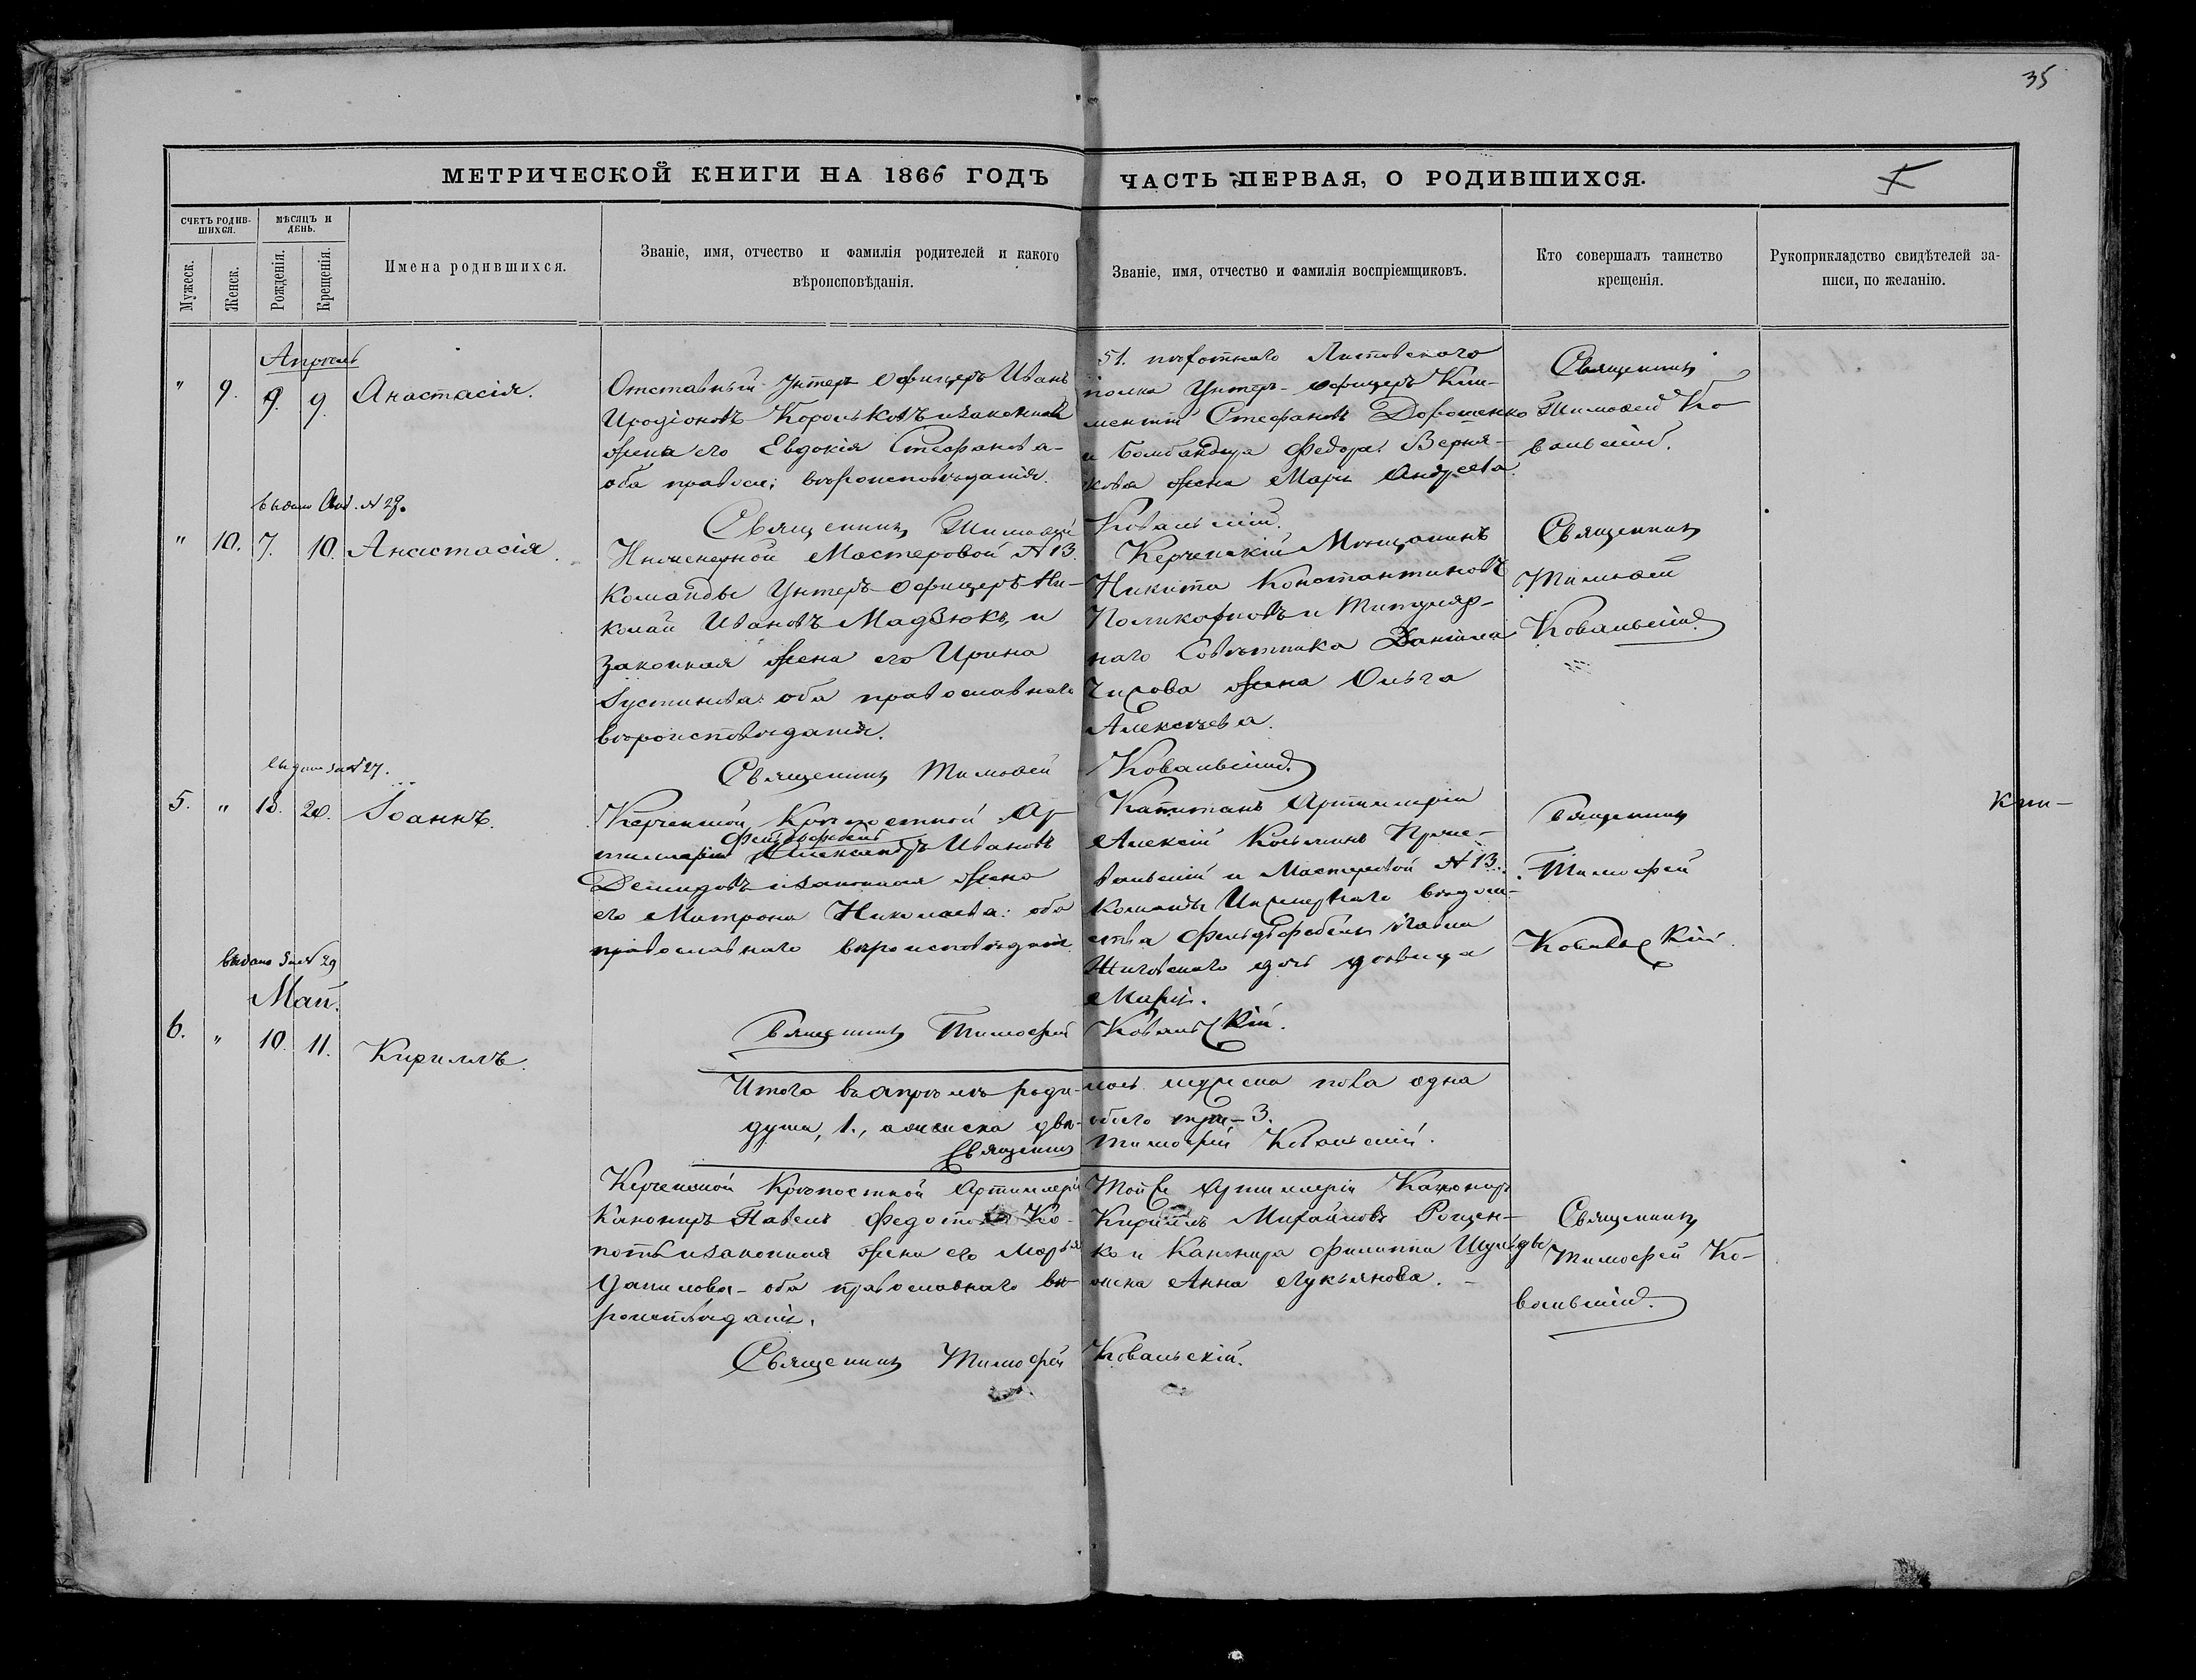 35
МЕТРИЧЕСКОЙ КНИГИ НА 1866 ГОДЪ
ЧАСТЬ ПЕРВАЯ, О РОДИВШИХСЯ.
СЧЕТЪ РОДИВ-
ШИХСЯ.
МѢСЯЦЪ И
ДЕНЬ.
Мужеск.
Женск.
Рожденія.
Крещенія.
Имена родившихся.
Званіе, имя, отчество и фамилія родителей и какого
вѣроисповѣданія.
Званіе, имя, отчество и фамилія воспріемщиковъ.
Кто совершалъ таинство
крещенія.
Рукоприкладство свидѣтелей за-
писи, по желанію.
Апрель
" 9. 9. 9. Анастасія.
Отставный Унтеръ офицеръ Иванъ
Иродіоновъ Корольковъ и законная
жена его Евдокія Стефанова-
оба правосл: вѣроисповѣданія.
51. пѣхотнаго Литовского
полка Унтеръ-офицеръ Кли-
ментій Стефановъ Дорошенко
и Бомбандира Федора
жена Марѳа Андреева.
Священникъ
Тимоѳей Ко
вальскій.
Священникъ Тимоѳей Ковальскій.
" 10. 7. 10. Анастасія.
Инженерной Мастеровой № 13.
Команды Унтеръ-офицеръ Ни-
колай Ивановъ Мадзюкъ, и
законная жена его Ирина
Іустинова: оба православнаго
вѣроисповѣданія.
Керченскій Мѣщанинъ
Никита Константиновъ
Поликарповъ и Титуляр-
наго Совѣтника Даніила
жена Ольга
Алексѣева.
Священникъ
Тимоѳей
Ковальскій.
Священникъ Тимоѳей Ковальскій.
5. " 18. 20. Іоаннъ.
Керченской Крѣпостной Ар-
тиллеріи Фейерверкеръ Александръ Ивановъ
Демидовъ и законная жена
его Матрона Николаева: оба
православнаго вѣроисповѣданія.
Капитанъ Артиллеріи
Алексій Козьминъ
и Мастеровой № 13.
команды Инженернаго вѣдом-
ства Фельдфебеля Павла
дочь дѣвица
Марія.
Священникъ
Тимофей
Ковальскій.
Священникъ Тимофей Ковальскій.
Итого въ Апрѣлѣ роди-лось мужска пола одна
душа, 1., а женска двѣ- обого три-3.
Священникъ Тимофей Ковальскій.
Май.
6. " 10. 11. Кириллъ.
Керченской Крѣпостной Артиллеріи
Канониръ Павелъ Федотовъ Ко-
потъ и законная жена его Марѳа
Данилова- оба православнаго вѣ-
роисповѣданія.
Той же Артиллеріи Канониръ
Кириллъ Михайловъ Рощен-
ко и Канонира Филиппа Шульды
жена Анна Лукьянова.-
Священникъ
Тимофей Ко-
вальскій.
Священникъ Тимофей Ковальскій.